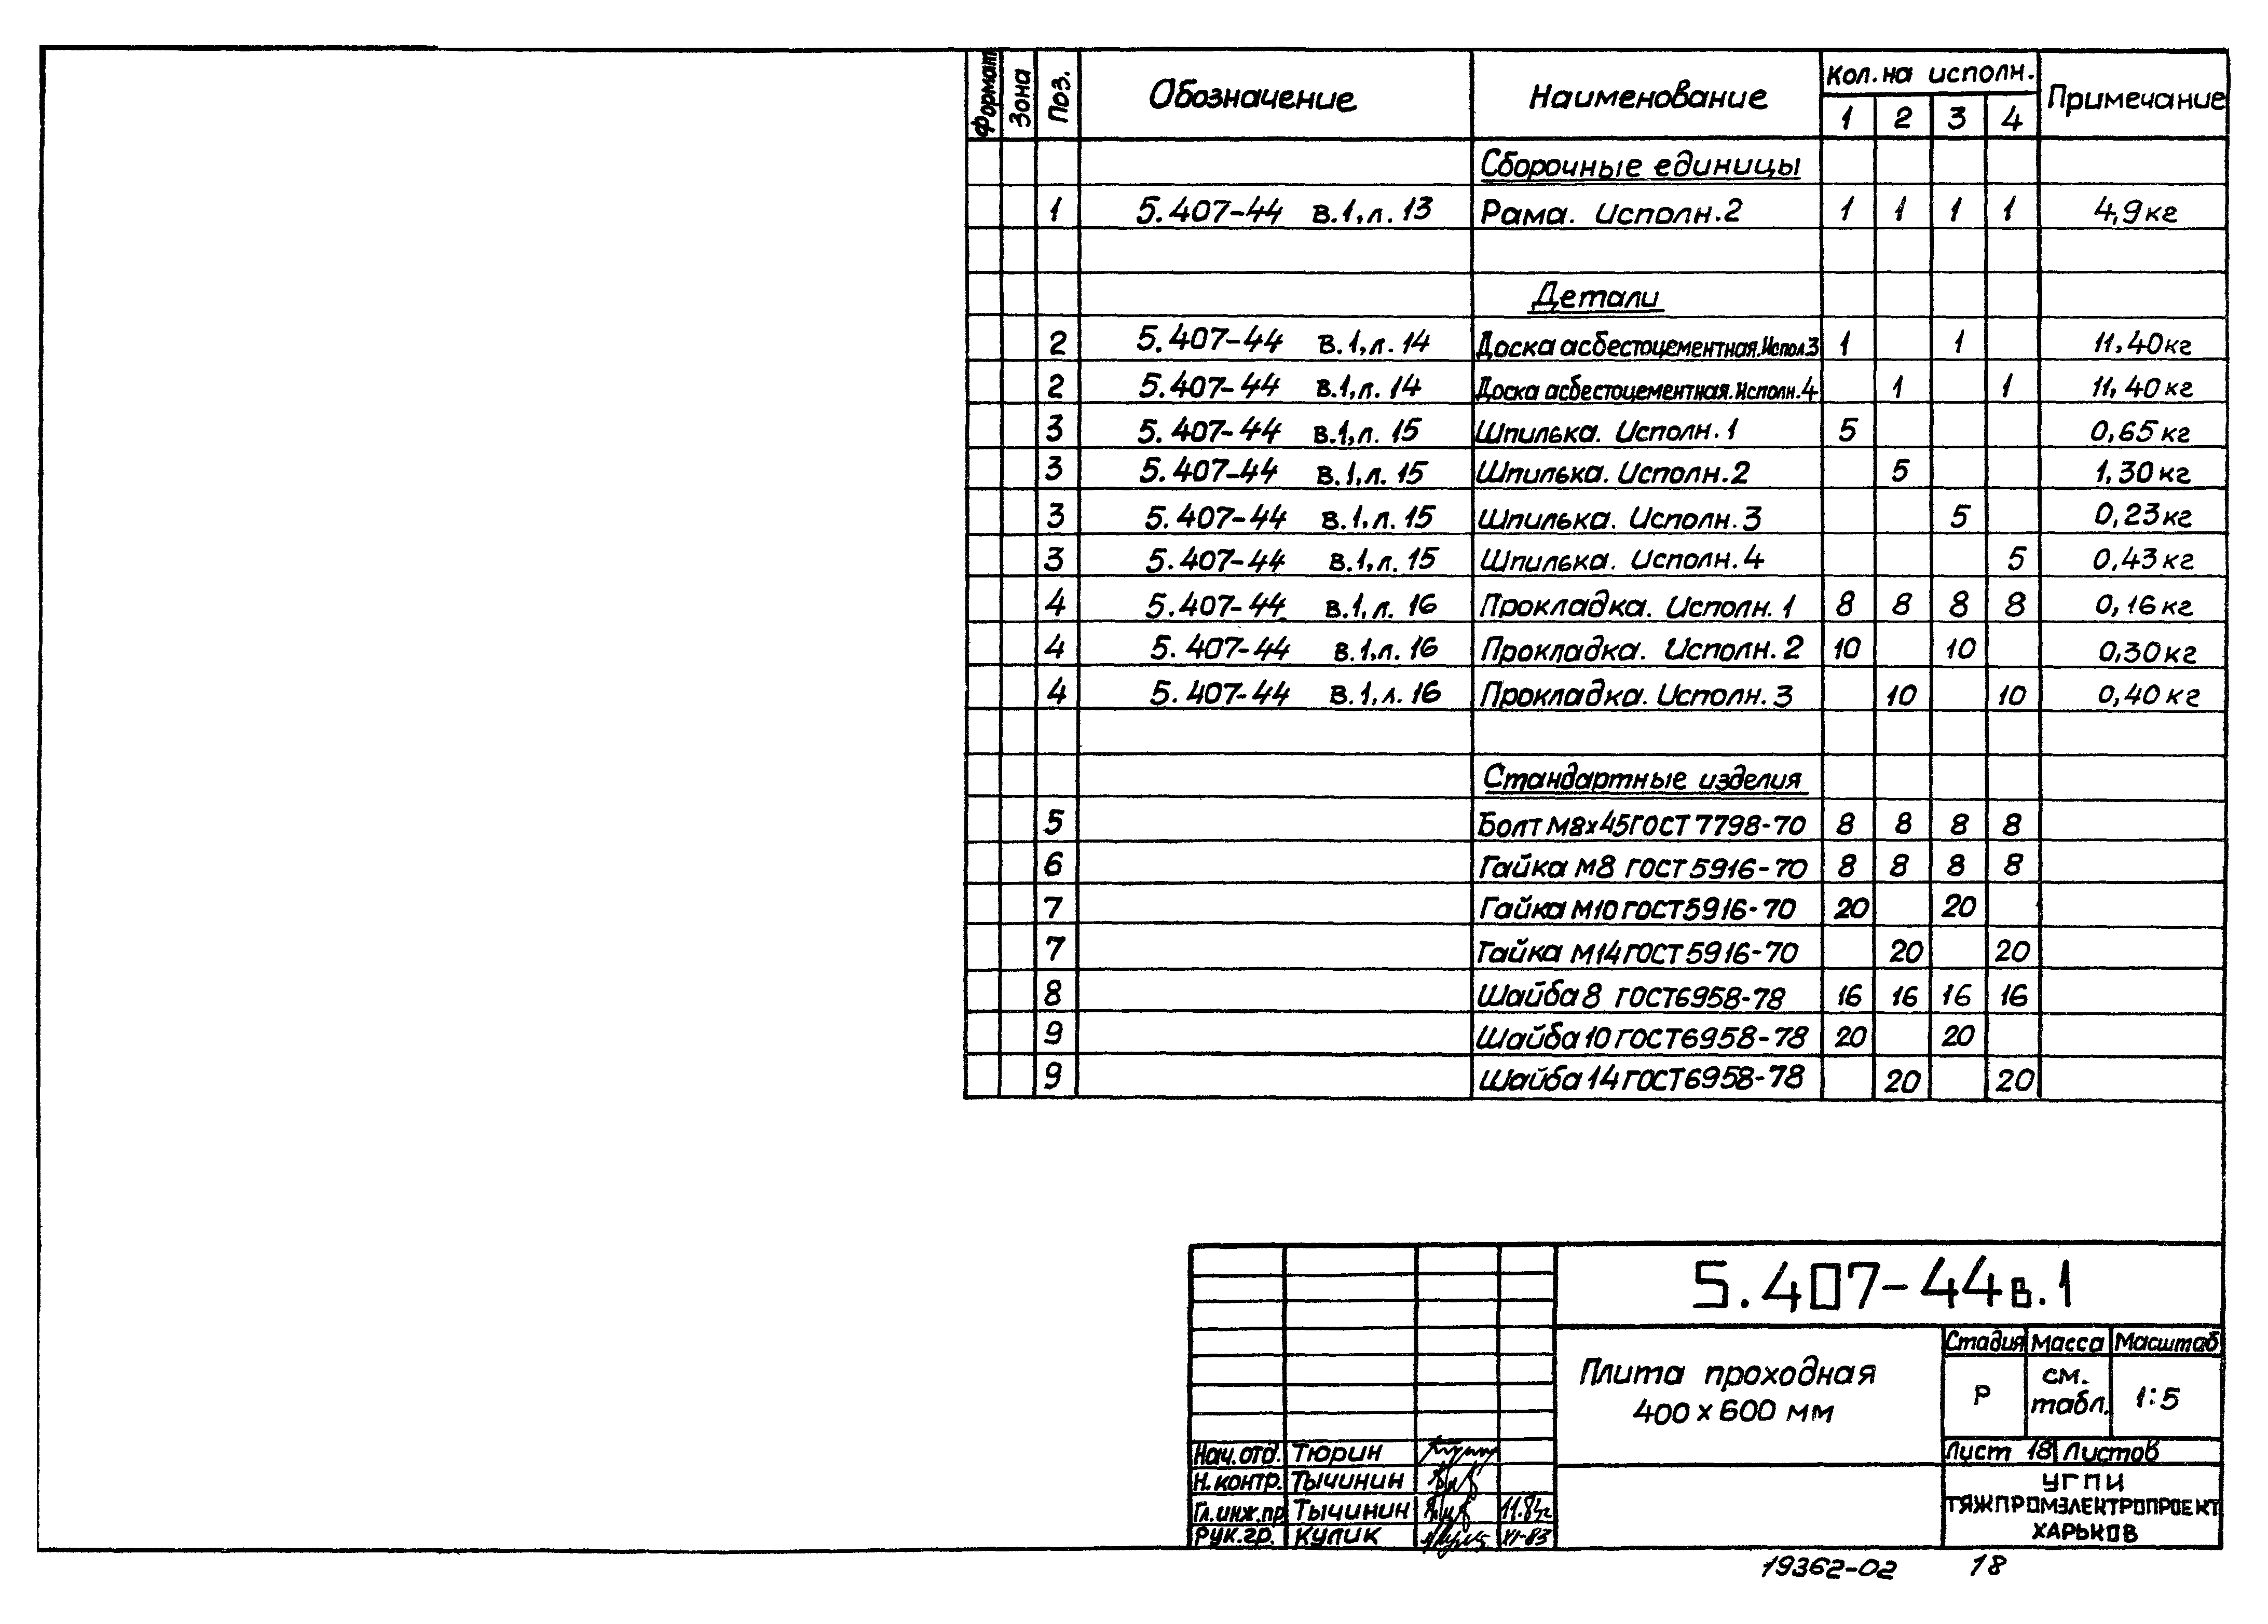 Формат Зона Поз. Обозначение Наименование Кол. на исполн. Примечание
1 2 3 4
Сборочные единицы
1 5.407-44 в.1, л. 13 Рама. Исполн. 2 1 1 1 1 4,9 кг
Детали
2 5.407-44 в.1, л. 14 Доска асбестоцементная. Испол. 3 1 1 11,40 кг
2 5.407-44 в.1, л. 14 Доска асбестоцементная. Исполн. 4 1 1 11,40 кг
3 5.407-44 в.1, л. 15 Шпилька. Исполн. 1 5 0,65 кг
3 5.407-44 в.1, л. 15 Шпилька. Исполн. 2 5 1,30 кг
3 5.407-44 в.1, л. 15 Шпилька. Исполн. 3 5 0,23 кг
3 5.407-44 в.1, л. 15 Шпилька. Исполн. 4 5 0,43 кг
4 5.407-44 в.1, л. 16 Прокладка. Исполн. 1 8 8 8 8 0,16 кг
4 5.407-44 в.1, л. 16 Прокладка. Исполн. 2 10 10 0,30 кг
4 5.407-44 в.1, л. 16 Прокладка. Исполн. 3 10 10 0,40 кг
Стандартные изделия
5 Болт М8х45 ГОСТ 7798-70 8 8 8 8
6 Гайка М8 ГОСТ 5916-70 8 8 8 8
7 Гайка М10 ГОСТ 5916-70 20 20
7 Гайка М14 ГОСТ 5916-70 20 20
8 Шайба 8 ГОСТ 6958-78 16 16 16 16
9 Шайба 10 ГОСТ 6958-78 20 20
9 Шайба 14 ГОСТ 6958-78 20 20
5.407-44 в.1
Плита проходная
400 х 600 мм
Стадия Масса Масштаб
Р см. табл. 1:5
Лист 18 Листов
Нач. отд. Тюрин
Н. контр. Тычинин
Гл. инж. пр. Тычинин 11.84г
Рук. гр. Кулик XI-83
УГПИ
ТЯЖПРОМЭЛЕКТРОПРОЕКТ
ХАРЬКОВ
19362-02 18